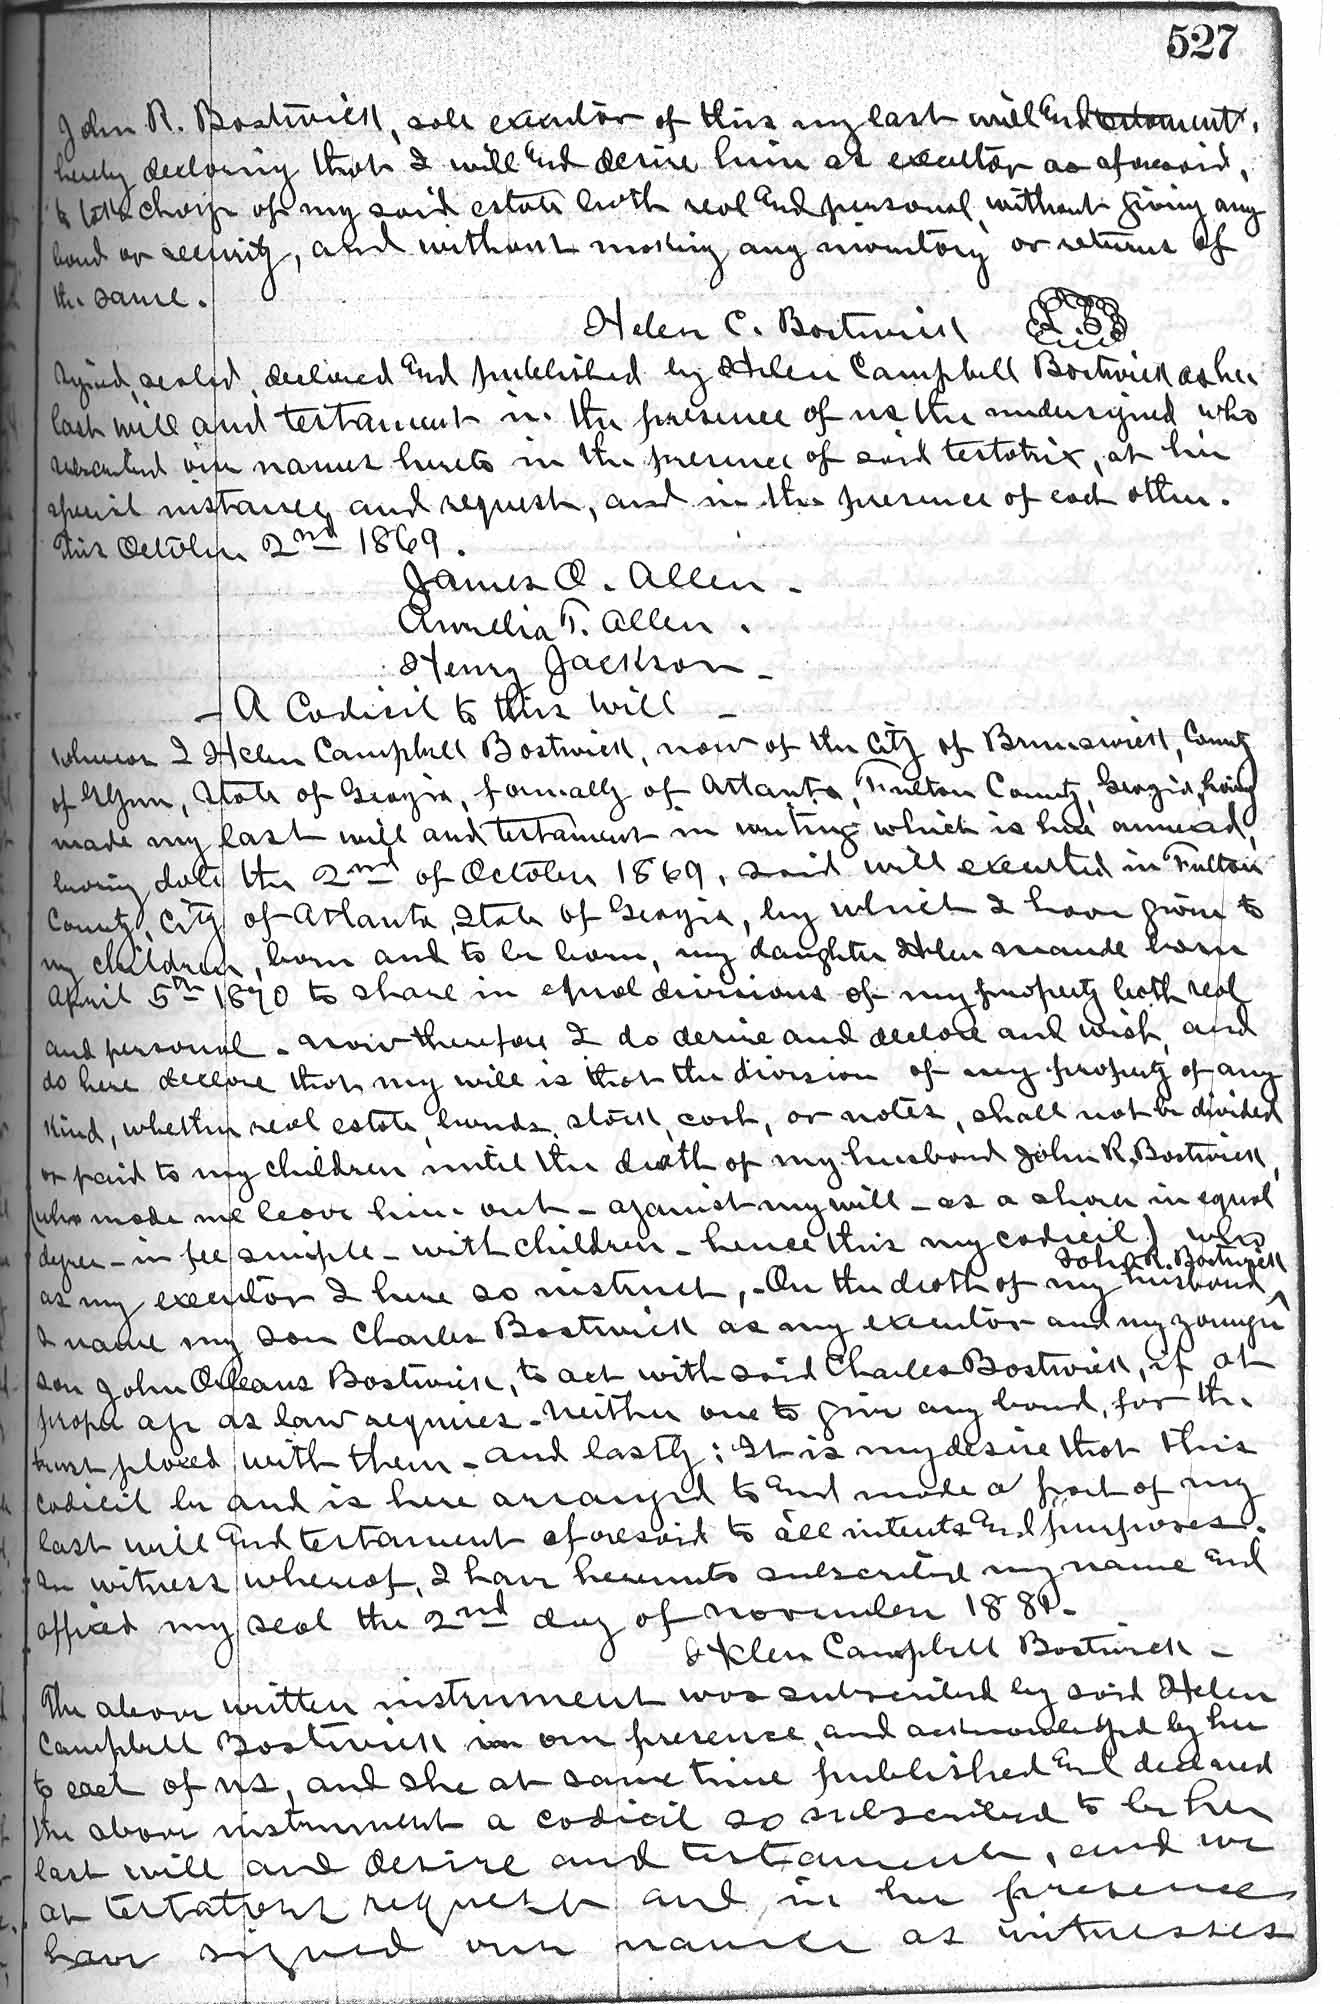 527
John R. Bostwick, sole executor of this my last will and testament,
hereby declaring that I will and desire him as executor as aforesaid,
to take charge of my said estate both real and personal, without giving any
bond or security, and without making any inventory or returns of
the same.
Helen C. Bostwick L.S.
Signed, sealed, declared and published by Helen Campbell Bostwick as her
last will and testament in the presence of us the undersigned who
subscribed our names hereto in the presence of said testatrix, at her
special instance and request, and in the presence of each other.
This October 2nd 1869.
James O. Allen.
Amelia T. Allen.
Henry Jackson
- A Codicil to this Will -
Whereas I Helen Campbell Bostwick, now of the City of Brunswick, County
of Glynn, State of Georgia, formally of Atlanta, Fulton County, Georgia, having
made my last will and testament in writing which is here annexed,
bearing date the 2nd of October 1869, said will executed in Fulton
County, City of Atlanta, State of Georgia, by which I have given to
my children, born and to be born, my daughter Helen Maude born
April 5th 1870 to share in equal divisions of my property both real
and personal - now therefore I do desire and declare and wish, and
do here declare that my will is that the division of my property of any
kind, whether real estate, bonds, stock, cash, or notes, shall not be divided
or paid to my children until the death of my husband John R. Bostwick,
(who made me leave him out - against my will - as a share in equal
degree - in fee simple - with children - hence this my codicil) who
as my executor I here so instruct, - On the death of my husband ^ John R. Bostwick
I name my son Charles Bostwick as my executor and my younger
son John Orleans Bostwick, to act with said Charles Bostwick, if at
proper age as law requires - Neither one to give any bond, for the
trust placed with them - and lastly: It is my desire that this
codicil be and is here arranged to and made a part of my
last will and testament aforesaid to all intents and purposes.
In witness whereof, I have hereunto subscribed my name and
affixed my seal the 2nd day of November 1881.
Helen Campbell Bostwick -
The above written instrument was subscribed by said Helen
Campbell Bostwick in our presence, and acknowledged by her
to each of us, and she at same time published and declared
the above instrument a codicil so subscribed to be her
last will and desire and testament, and we
at testators request and in her presence
have signed our names as witnesses